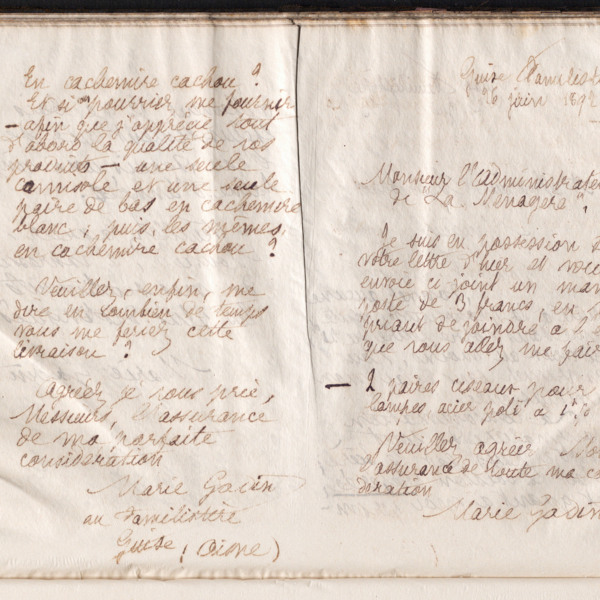 En cachemire cachou ?
Et si pourriez me fournir
– afin que j'apprécie tout
d'abord la qualité de vos
produits – une seule
camisole et une seule
paire de bas en cachemire
blanc, puis, les mêmes,
en cachemire cachou ?
Veuillez, enfin, me
dire en combien de temps
vous me feriez cette
livraison ?
Agréez je vous prie,
Messieurs, l'assurance
de ma parfaite
considération
Marie Godin
au Familistère
Guise, (Aisne)
Guise Familist
26 juin 189
Monsieur l'administrate
de "La Ménagère",
Je suis en possession d
votre lettre d'hier et vou
envoie ci joint un man
poste de 3 francs, en
priant de joindre à
que vous allez me fair
– 2 paires ciseaux pour
lampes, acier poli à 1
Veuillez agréer Mon
l'assurance de toute ma co
dération
Marie Godin